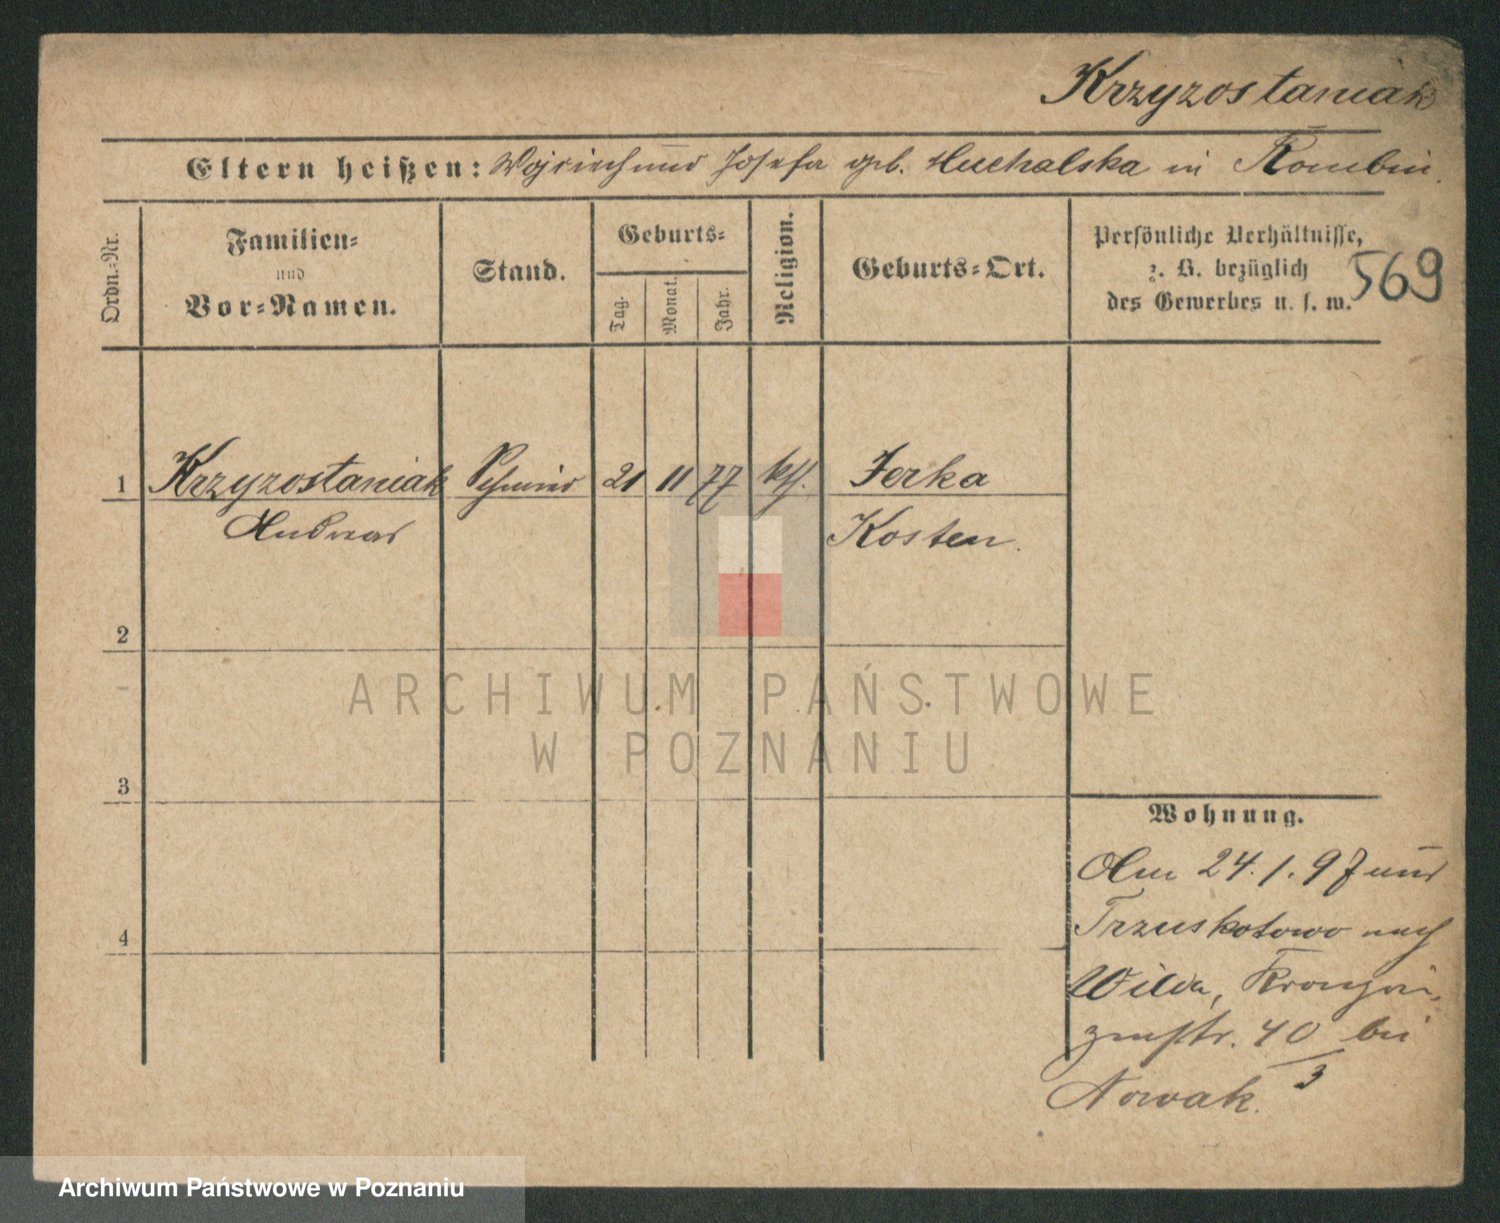 Krzyzostaniak
Eltern heißen: Wojciech und Josefa geb. Huchalska in Kombin.
Ordn.-Nr.
Familien-
und
Vor-Namen.
Stand.
Geburts-
Tag.
Monat.
Jahr.
Religion.
Geburts-Ort.
Persönliche Verhältnisse,
z. B. bezüglich
des Gewerbes u. s. w.
569
1 Krzyzostaniak Schmied 21 11 77 kth. Jerka
Andreas Kosten.
2
3
4
Wohnung.
Am 24.1.97 aus
Trzuskotowo nach
Wilda, Kronprin-
zenstr. 40 bei
Nowak. 3
ARCHIWUM PAŃSTWOWE
W POZNANIU
Archiwum Państwowe w Poznaniu